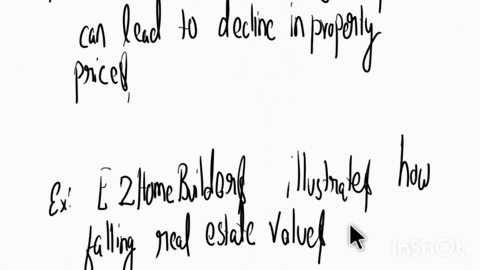 can lead to decline in property
prices,
Ex: EZHomeBuilders, illustrates how
falling real estate values
InShot